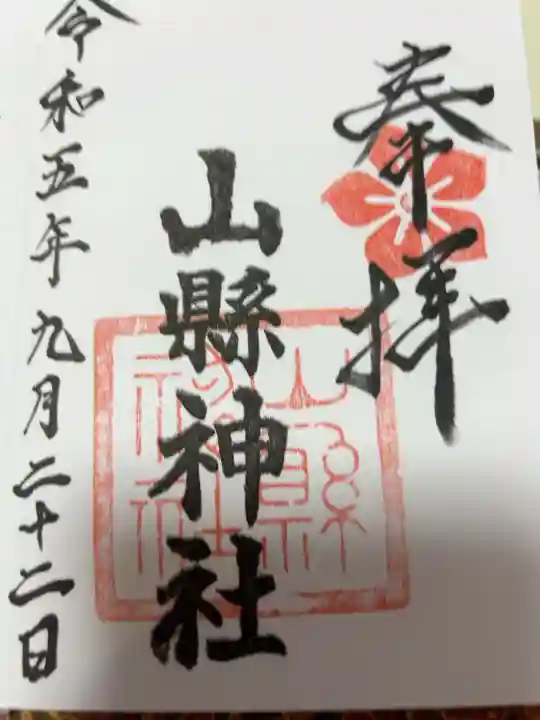 奉拝
山縣神社
山縣神社
令和五年九月二十二日